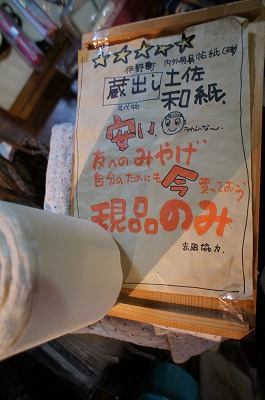 ☆☆☆☆☆
伊野町 内外典具帖紙(株)
蔵出し 土佐
年代物 和紙.
安い.
友へのみやげ
自分のためにも 今 買っておこう
現品のみ